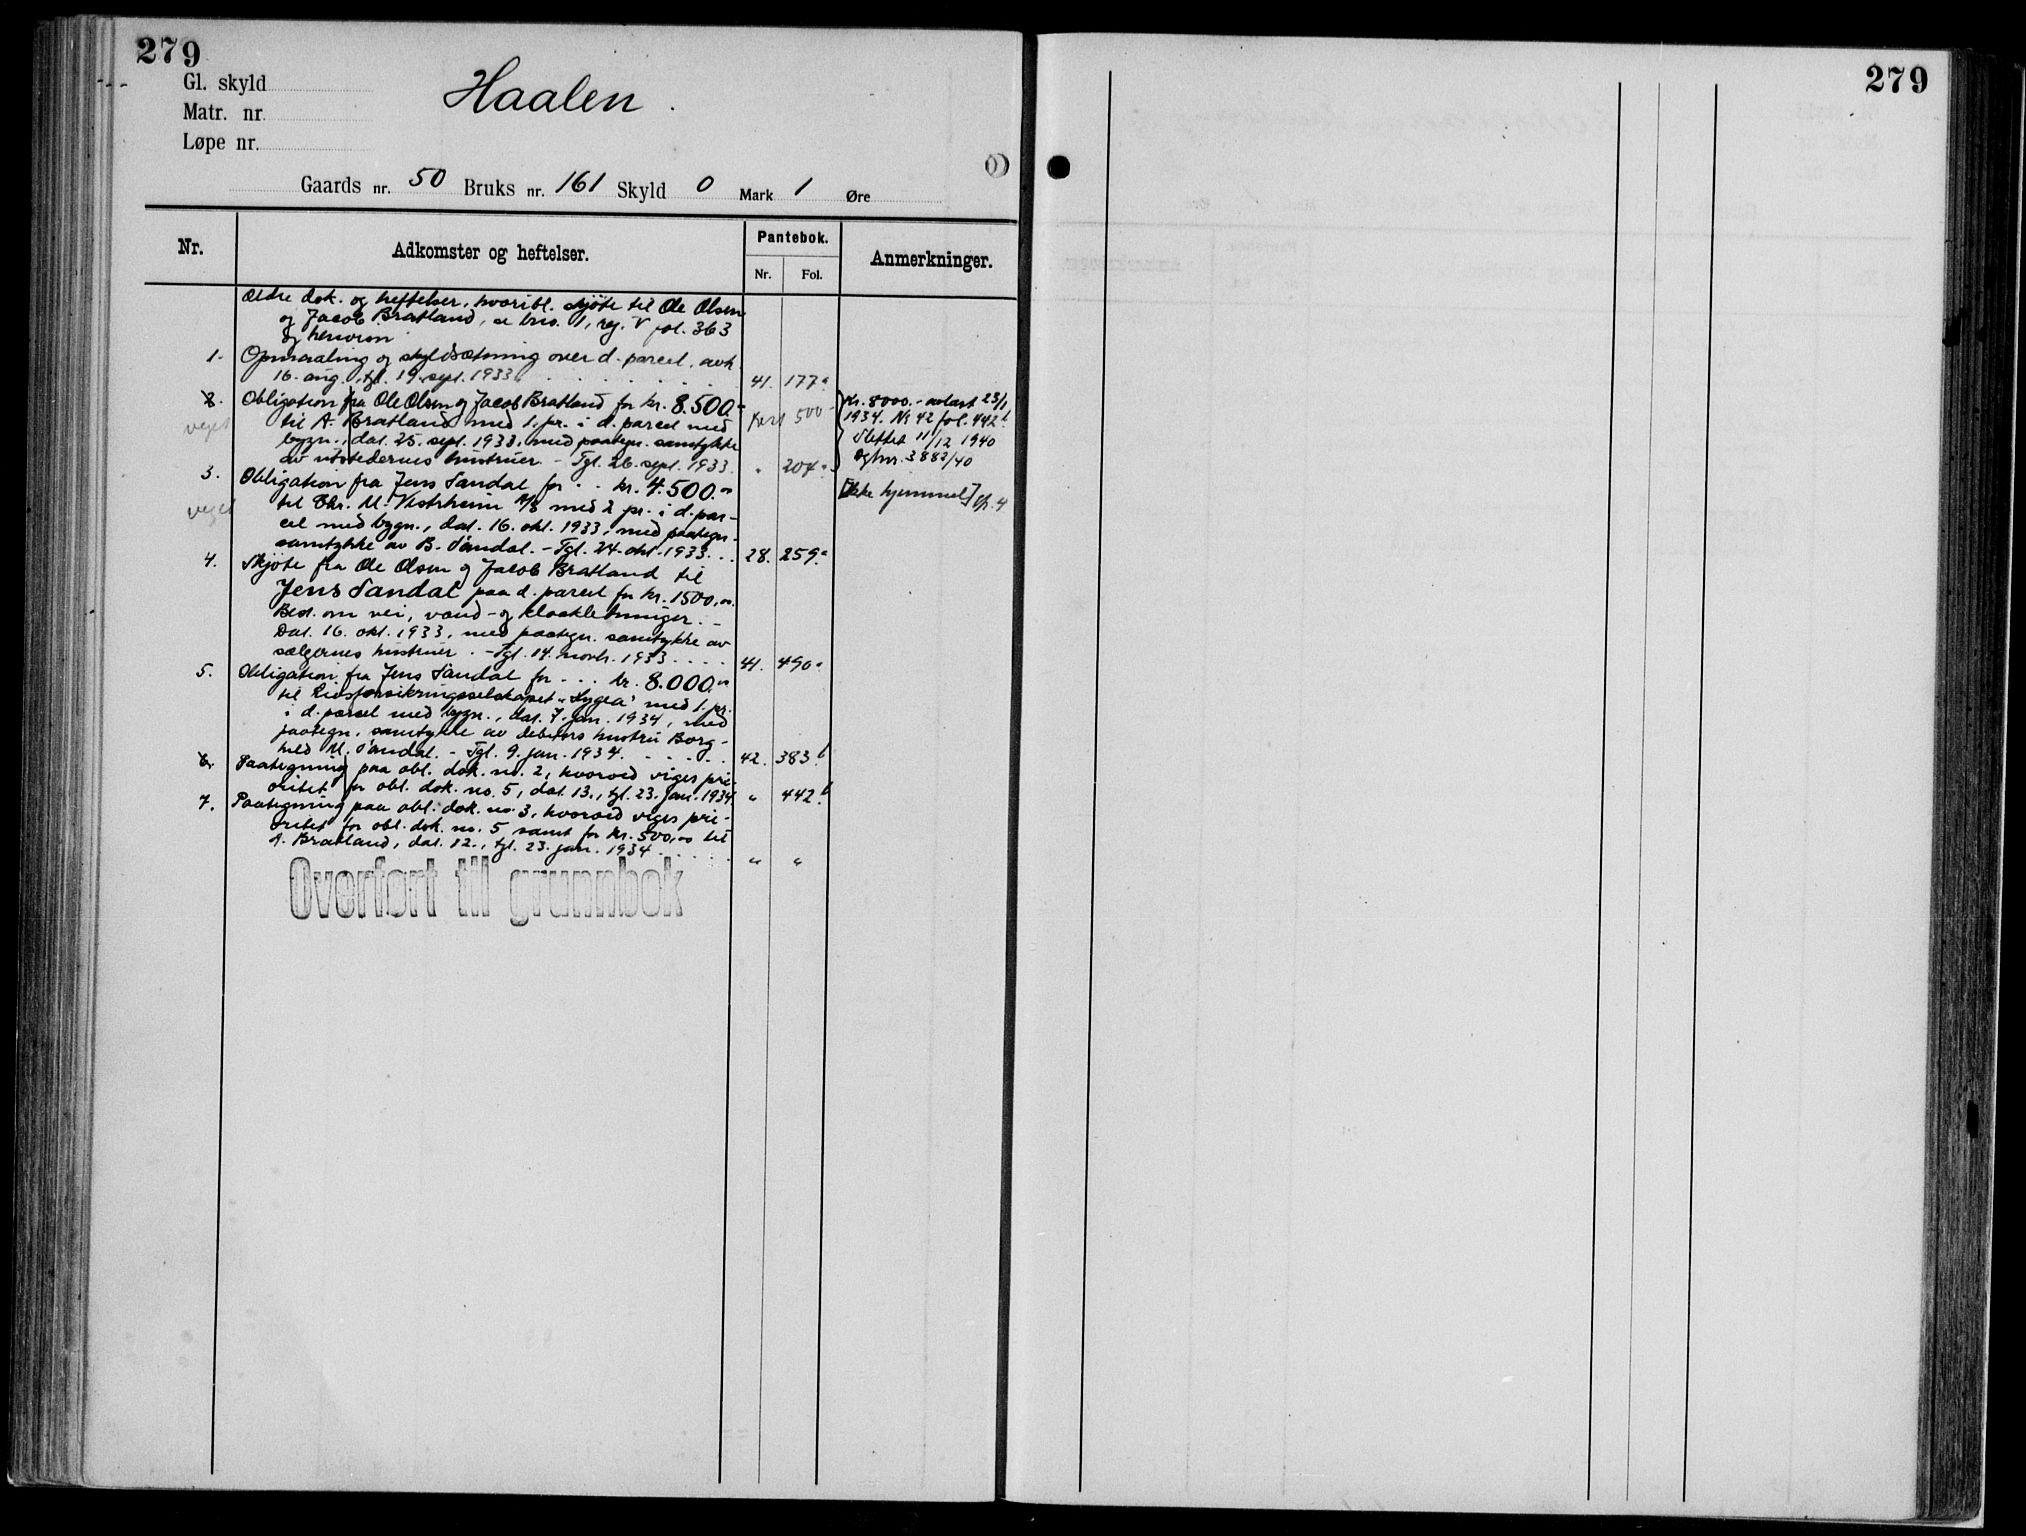 279
Gl. skyld
Matr. nr.
Løpe nr.
Haalen.
Gaards nr. 50 Bruks nr. 161 Skyld 0 Mark 1 Øre
Nr.
Adkomster og heftelser.
Pantebok.
Nr. Fol.
Anmerkninger.
Ældre dok. og heftelser, hvoribl. skjøte til Ole Olsen
og Jacob Bratland, se brs. 1, reg. V fol. 363
og henvisn
1. Opmaaling og skyldsætning over d. parcel, avh.
16. aug., tgl. 19. sept. 1933. 41. 177a
2. Obligation fra Ole Olsen og Jacob Bratland for kr. 8.500.-
veget til A. Bratland med 1. pr. i d. parcel med Rest 500.-
bygn., dat. 25. sept. 1933, med paategn. samtykke
av utstedernes hustruer. - Tgl. 26. sept. 1933. " 204a
Kr. 8000.- avlast 23/1
1934. No 42 fol. 442b
Slettet 11/12 1940
Dgbnr. 3882/40
3. Obligation fra Jens Sandal for .. kr. 4.500.00
veget til Chr. M. Vestrheim A/S med 2 pr. i d. par-
cel med bygn., dat. 16. okt. 1933, med paategn.
samtykke av B. Sandal. - Tgl. 24. okt. 1933. .. 28. 259a
[Ikke hjemmel] cfr. 4
4. Skjøte fra Ole Olsen og Jacob Bratland til
Jens Sandal paa d. parcel for kr. 1500,00.
Best. om vei, vand- og kloakledninger. -
Dat. 16. okt. 1933, med paategn. samtykke av
sælgernes hustruer. - Tgl. 14. novbr. 1933.... 41. 490a
5. Obligation fra Jens Sandal for ... kr. 8.000.00
til Livsforsikringsselskapet "Hygea" med 1. pr.
i d. parcel med bygn., dat. 7. jan. 1934, med
paategn. samtykke av debitors hustru Borg-
hild M. Sandal. - Tgl. 9. jan. 1934. 42. 383b
6. Paategning paa obl. dok. no. 2, hvorved viges pri-
oritet for obl. dok. no. 5, dat. 13., tgl. 23. jan. 1934. " 442b
7. Paategning paa obl. dok. no. 3, hvorved viges pri-
oritet for obl. dok. no. 5 samt for kr. 500,00 til
A. Bratland, dat. 12., tgl. 23. jan. 1934..... " "
Overført til grunnbok
279